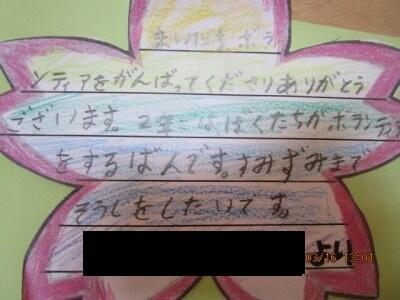 まいにち ボラ
ンティアをがんばってくださりありがとう
ございます。2年 はぼくたちが、ボランティア
をするばんです。すみずみまで
そうじをしたいです。
より
03/16 13:01